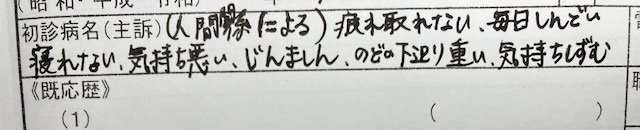 (昭和・平成・令和)
初診病名(主訴)(人間関係による)疲れ取れない、毎日しんどい
寝れない、気持ち悪い、じんましん、のどの下辺り重い、気持ちしずむ
《既応歴》
(1) ( )